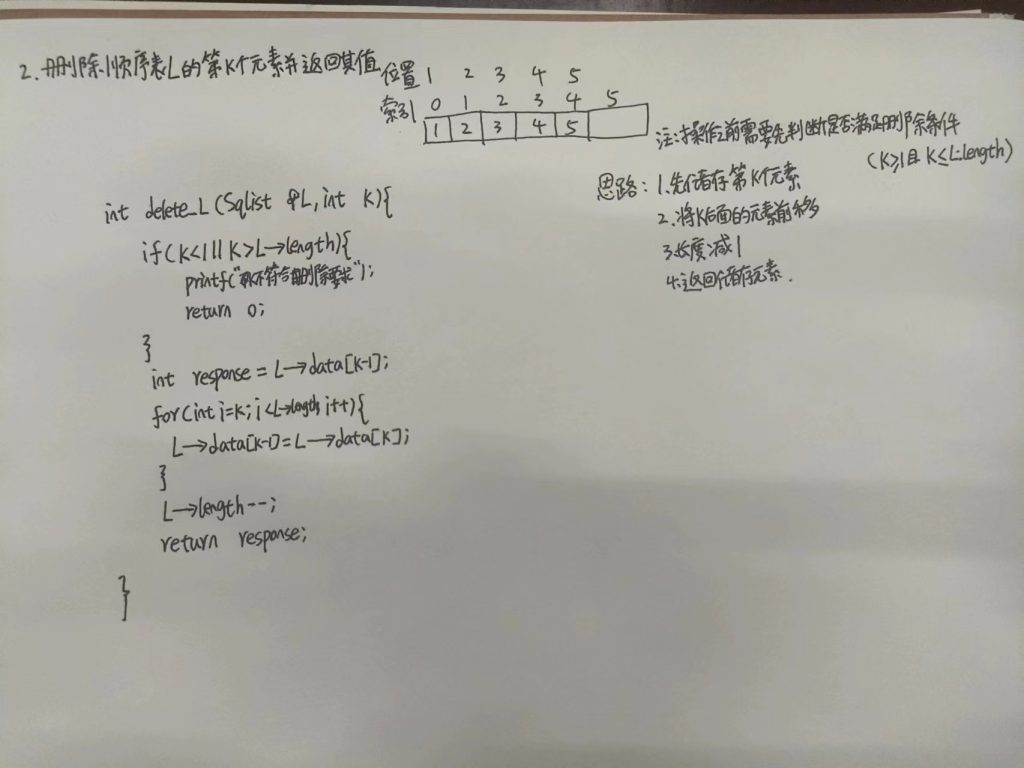 2.删除顺序表L的第K个元素并返回其值
位置 1 2 3 4 5
索引 0 1 2 3 4 5
1 2 3 4 5
注:操作之前需要先判断是否满足删除条件
(K≥1且K≤L.length)
思路:1.先储存第K个元素
2.将K后面的元素前移
3.长度减1
4.返回储存元素.
int delete_L(Sqlist &L,int K){
if(K<1||K>L→length){
printf("不符合删除要求");
return 0;
}
int response=L→data[K-1];
for(int i=K;i<L→length;i++){
L→data[K-1]=L→data[K];
}
L→length--;
return response;
}